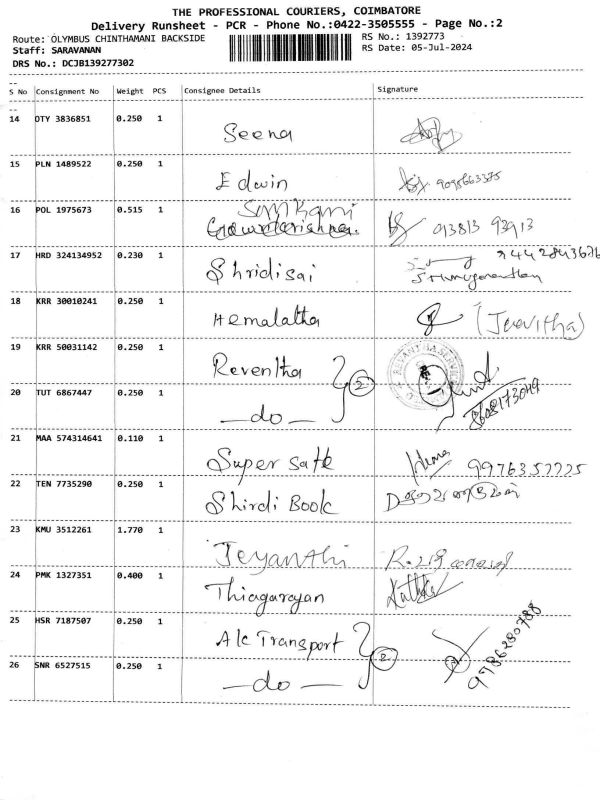 THE PROFESSIONAL COURIERS, COIMBATORE
Delivery Runsheet - PCR - Phone No.:0422-3505555 - Page No.:2
Route: OLYMBUS CHINTHAMANI BACKSIDE RS No.: 1392773
Staff: SARAVANAN RS Date: 05-Jul-2024
DRS No.: DCJB139277302
S No Consignment No Weight PCS Consignee Details Signature
14 OTY 3836851 0.250 1 Seena
15 PLN 1489522 0.250 1 Edwin 9095663375
16 POL 1975673 0.515 1 Sankani
17 HRD 324134952 0.230 1 Shridisai
18 KRR 30010241 0.250 1 Hemalatha (Jeevitha)
19 KRR 50031142 0.250 1 Reventha 2
20 TUT 6867447 0.250 1 —do—
21 MAA 574314641 0.110 1 Super Satk
22 TEN 7735290 0.250 1 Shirdi Book
23 KMU 3512261 1.770 1 Jeyanthi
24 PMK 1327351 0.400 1 Thiagarayan
25 HSR 7187507 0.250 1 A/c Transport 2 9786280788
26 SNR 6527515 0.250 1 —do—